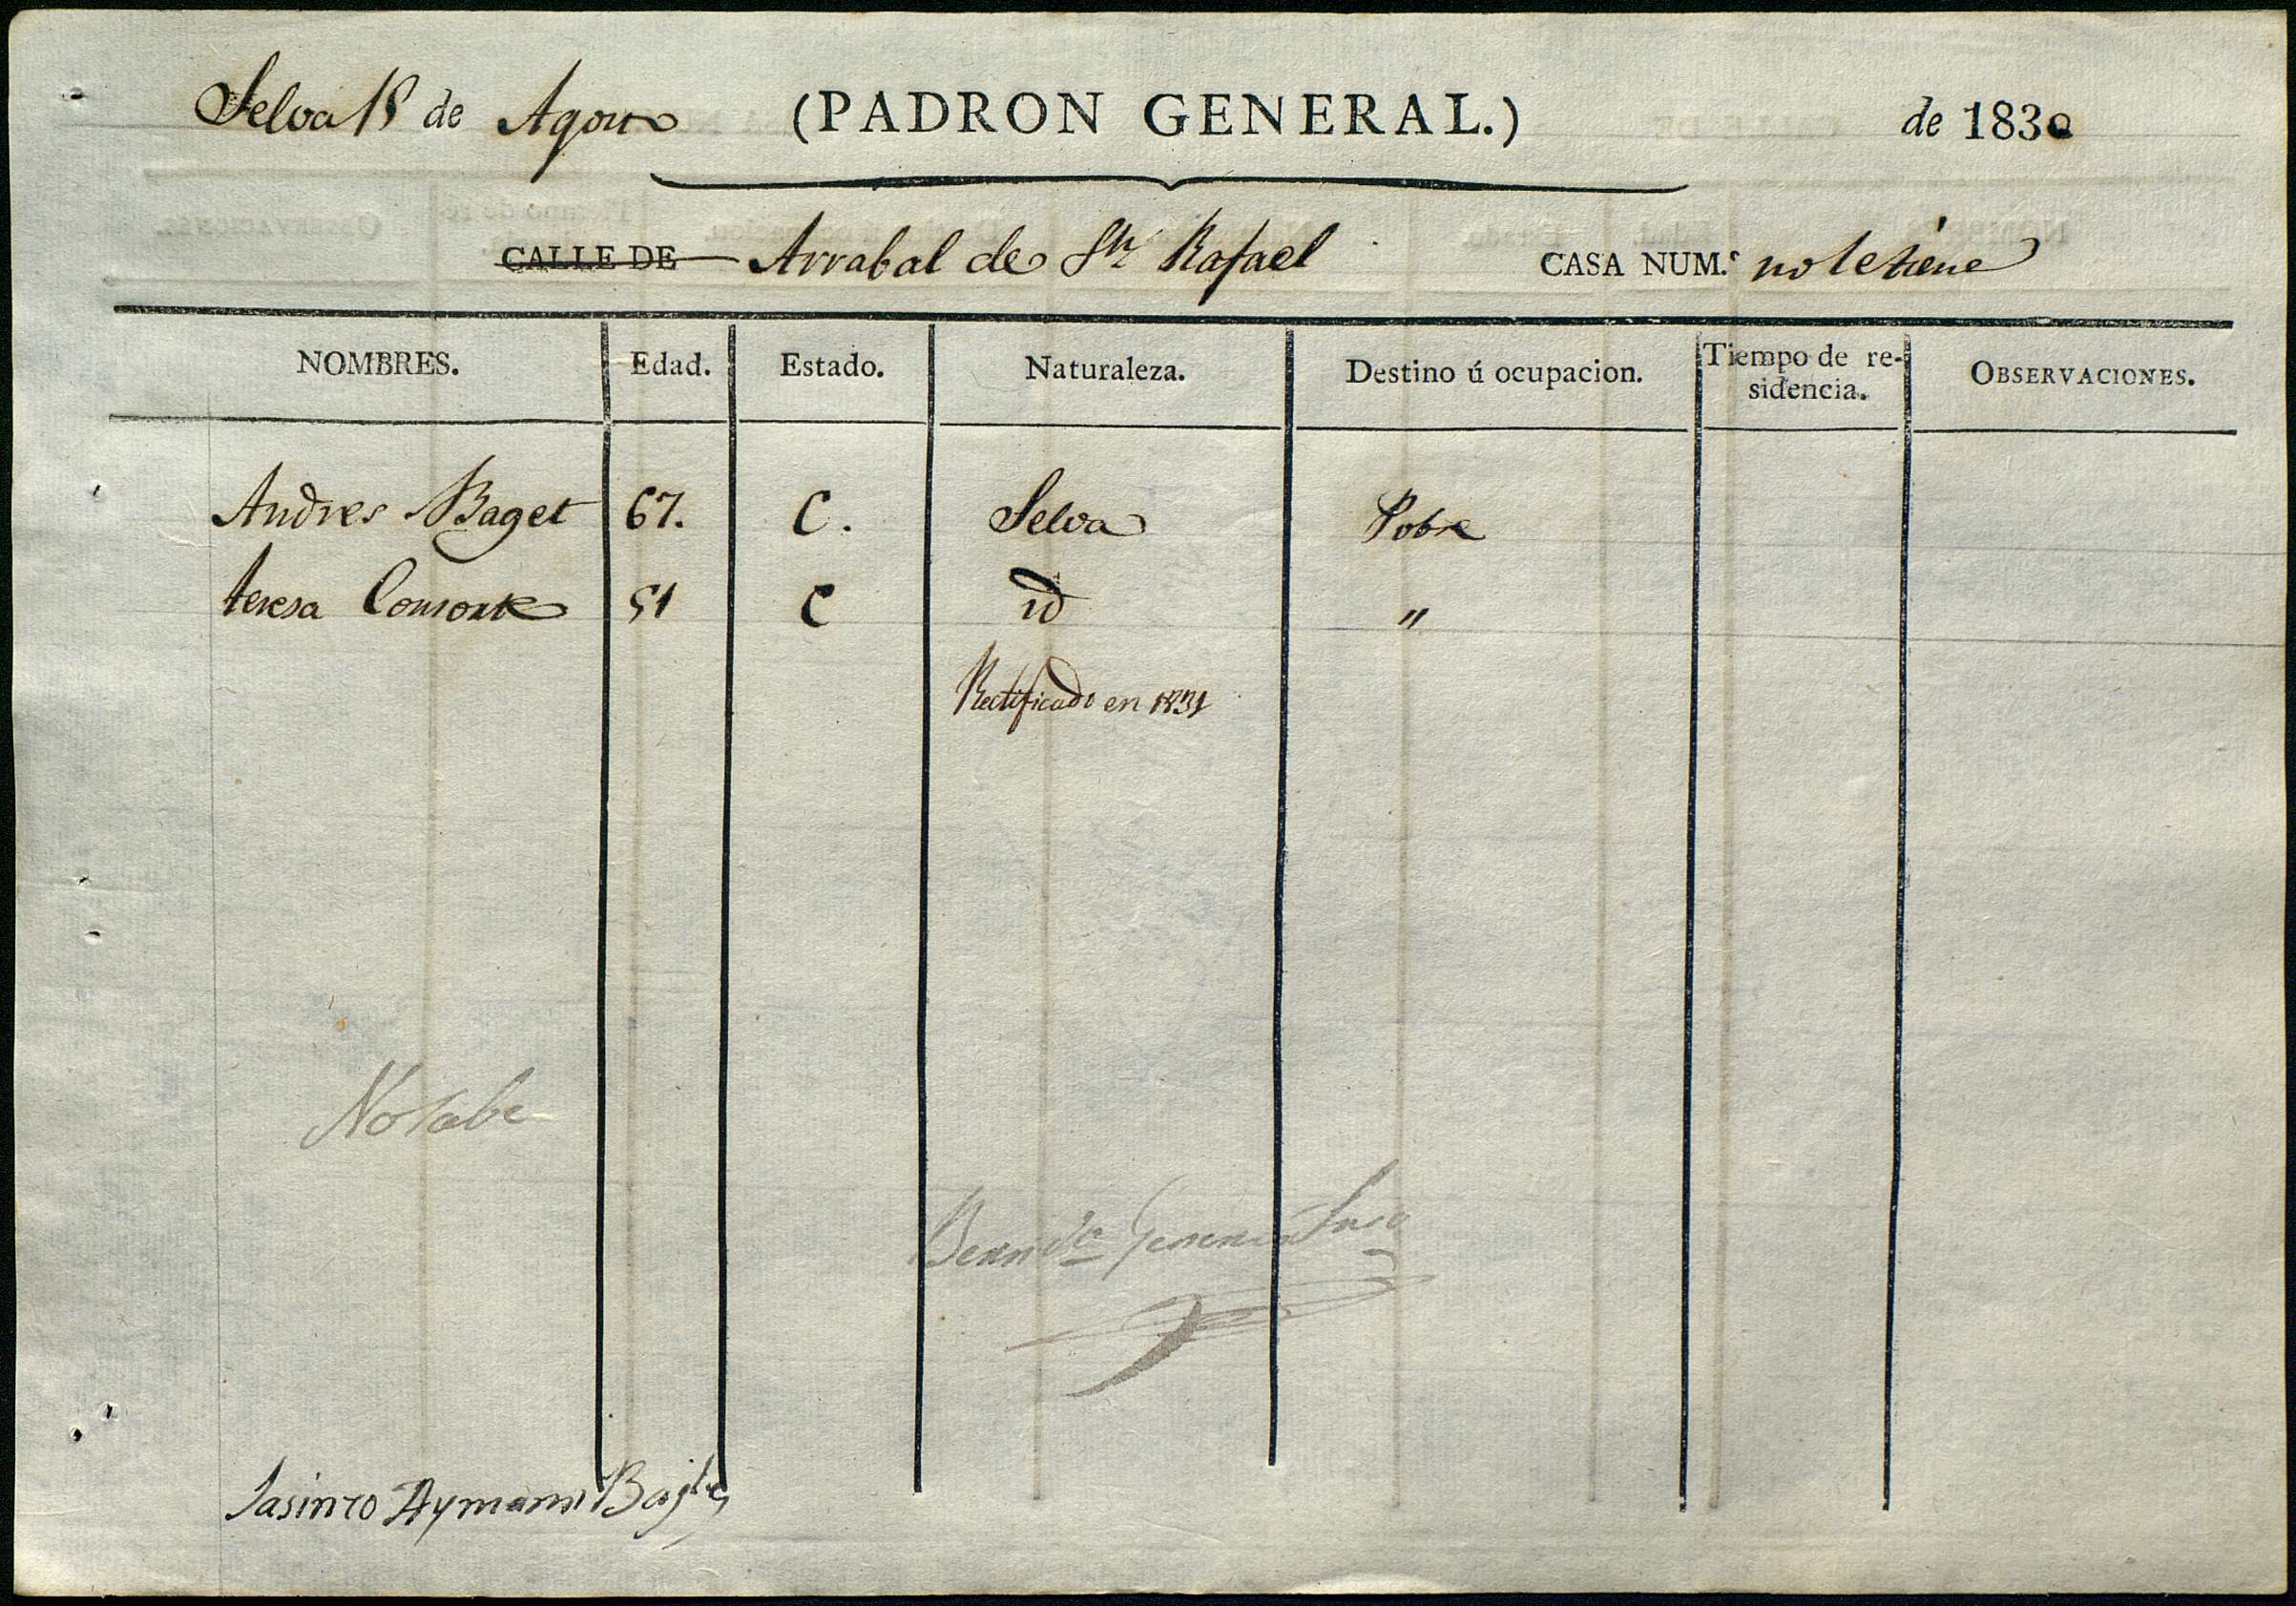 Selva 18 de Agosto (PADRON GENERAL.) de 1830
CALLE DE Arrabal de Sn Rafael CASA NUM.º no le tiene
NOMBRES. Edad. Estado. Naturaleza. Destino ú ocupacion. Tiempo de re-
sidencia. OBSERVACIONES.
Andres Baget 67. C. Selva Pobre
teresa Consorte 51 C id "
Rectificado en 1831
No sabe
Jasinto Aymami Bayle